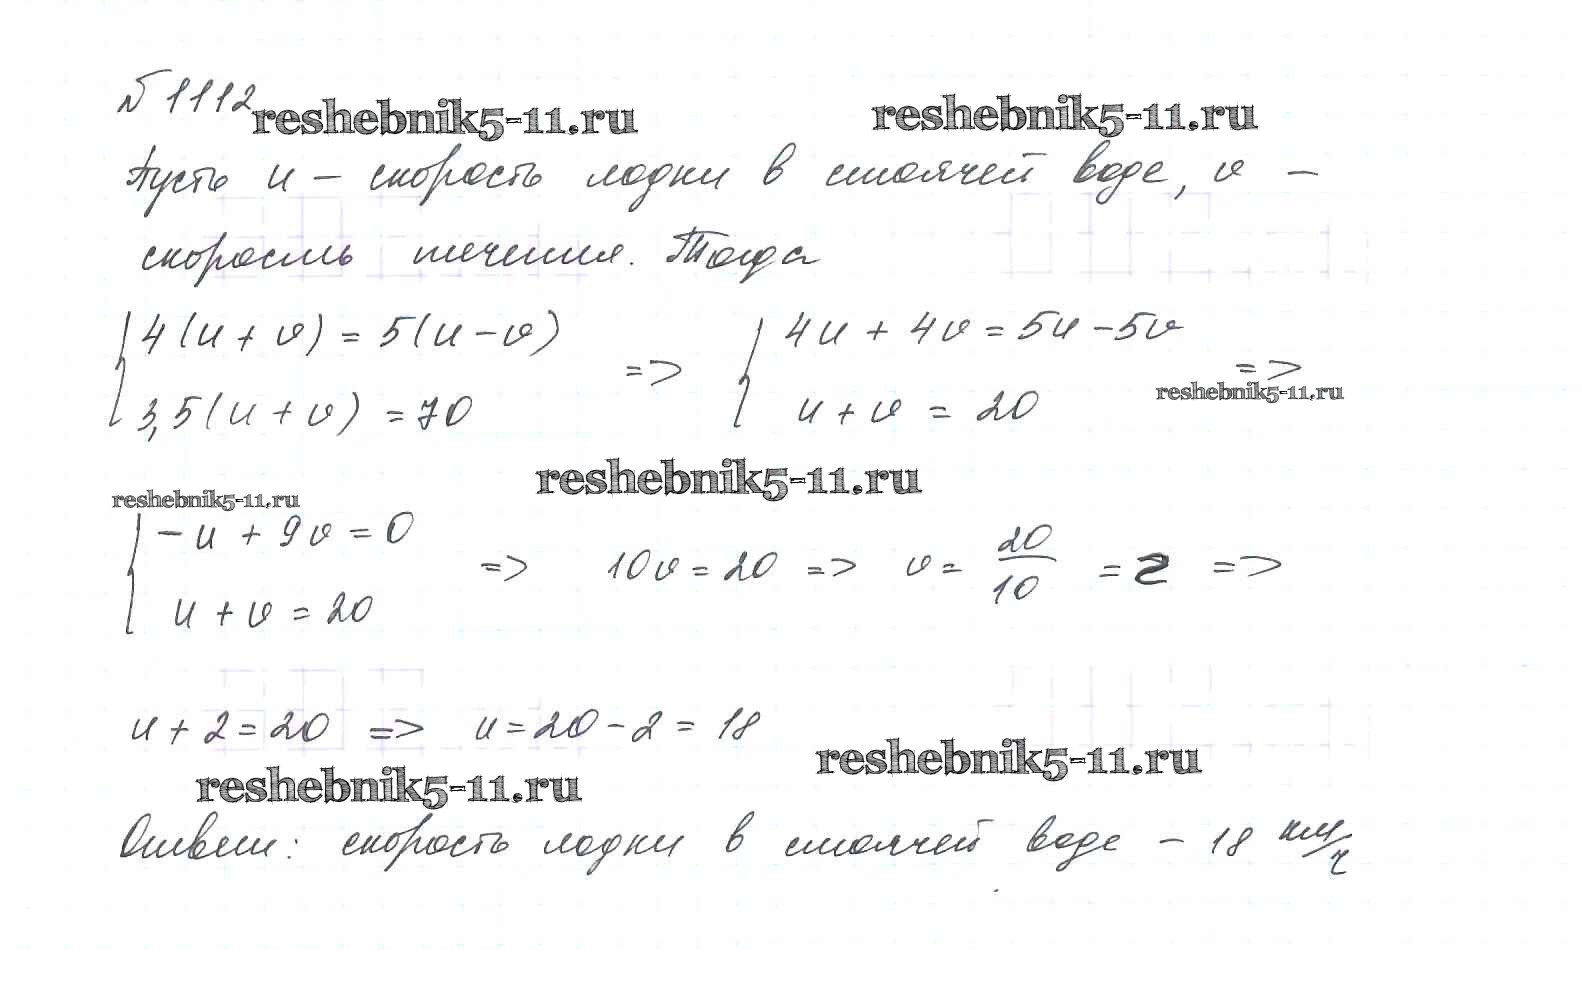 № 1112
reshebnik5-11.ru reshebnik5-11.ru
Пусть u – скорость лодки в стоячей воде, v –
скорость течения. Тогда
{ 4(u + v) = 5(u – v) => { 4u + 4v = 5u – 5v =>
{ 3,5(u + v) = 70 { u + v = 20
reshebnik5-11.ru
reshebnik5-11.ru
reshebnik5-11.ru
{ – u + 9v = 0 => 10v = 20 => v = 20/10 = 2 =>
{ u + v = 20
u + 2 = 20 => u = 20 – 2 = 18
reshebnik5-11.ru reshebnik5-11.ru
Ответ: скорость лодки в стоячей воде – 18 км/ч